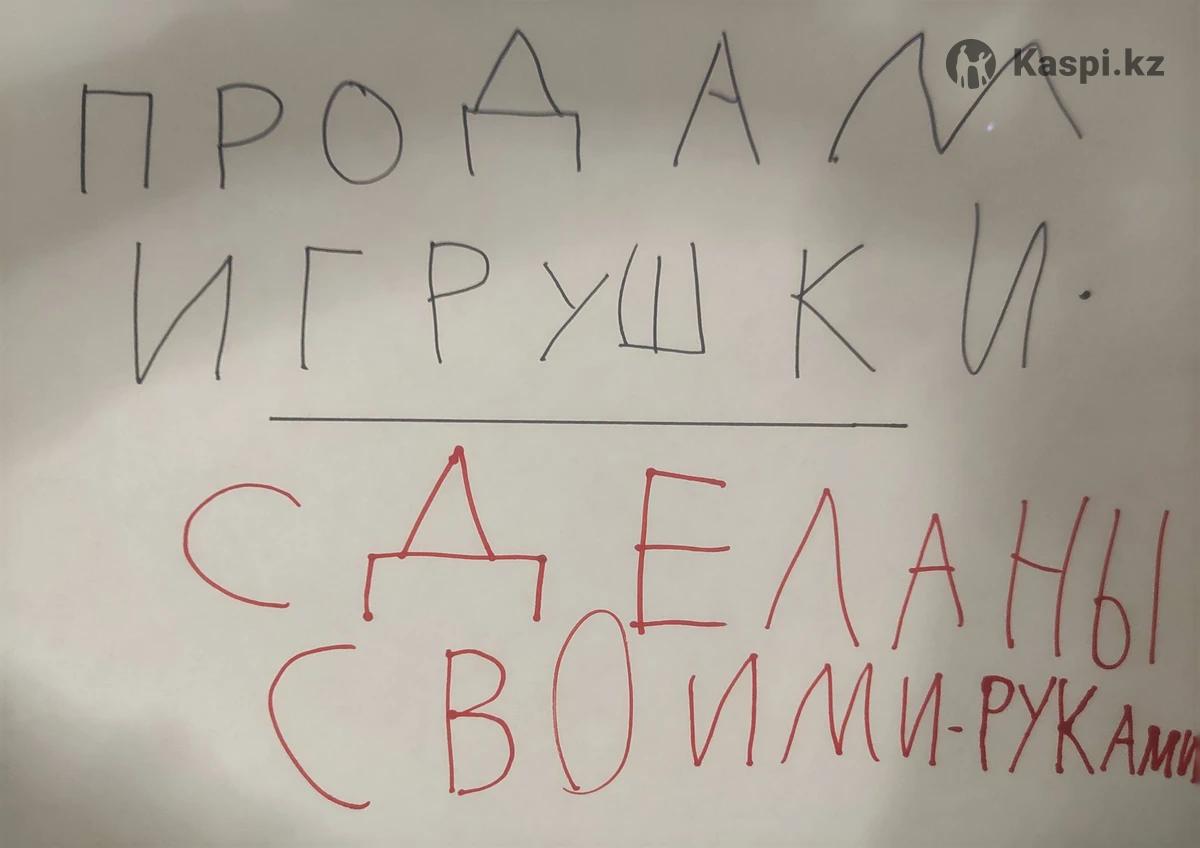 Kaspi.kz
ПРОДАМ
ИГРУШКИ.
СДЕЛАНЫ
СВОИМИ-РУКАМИ